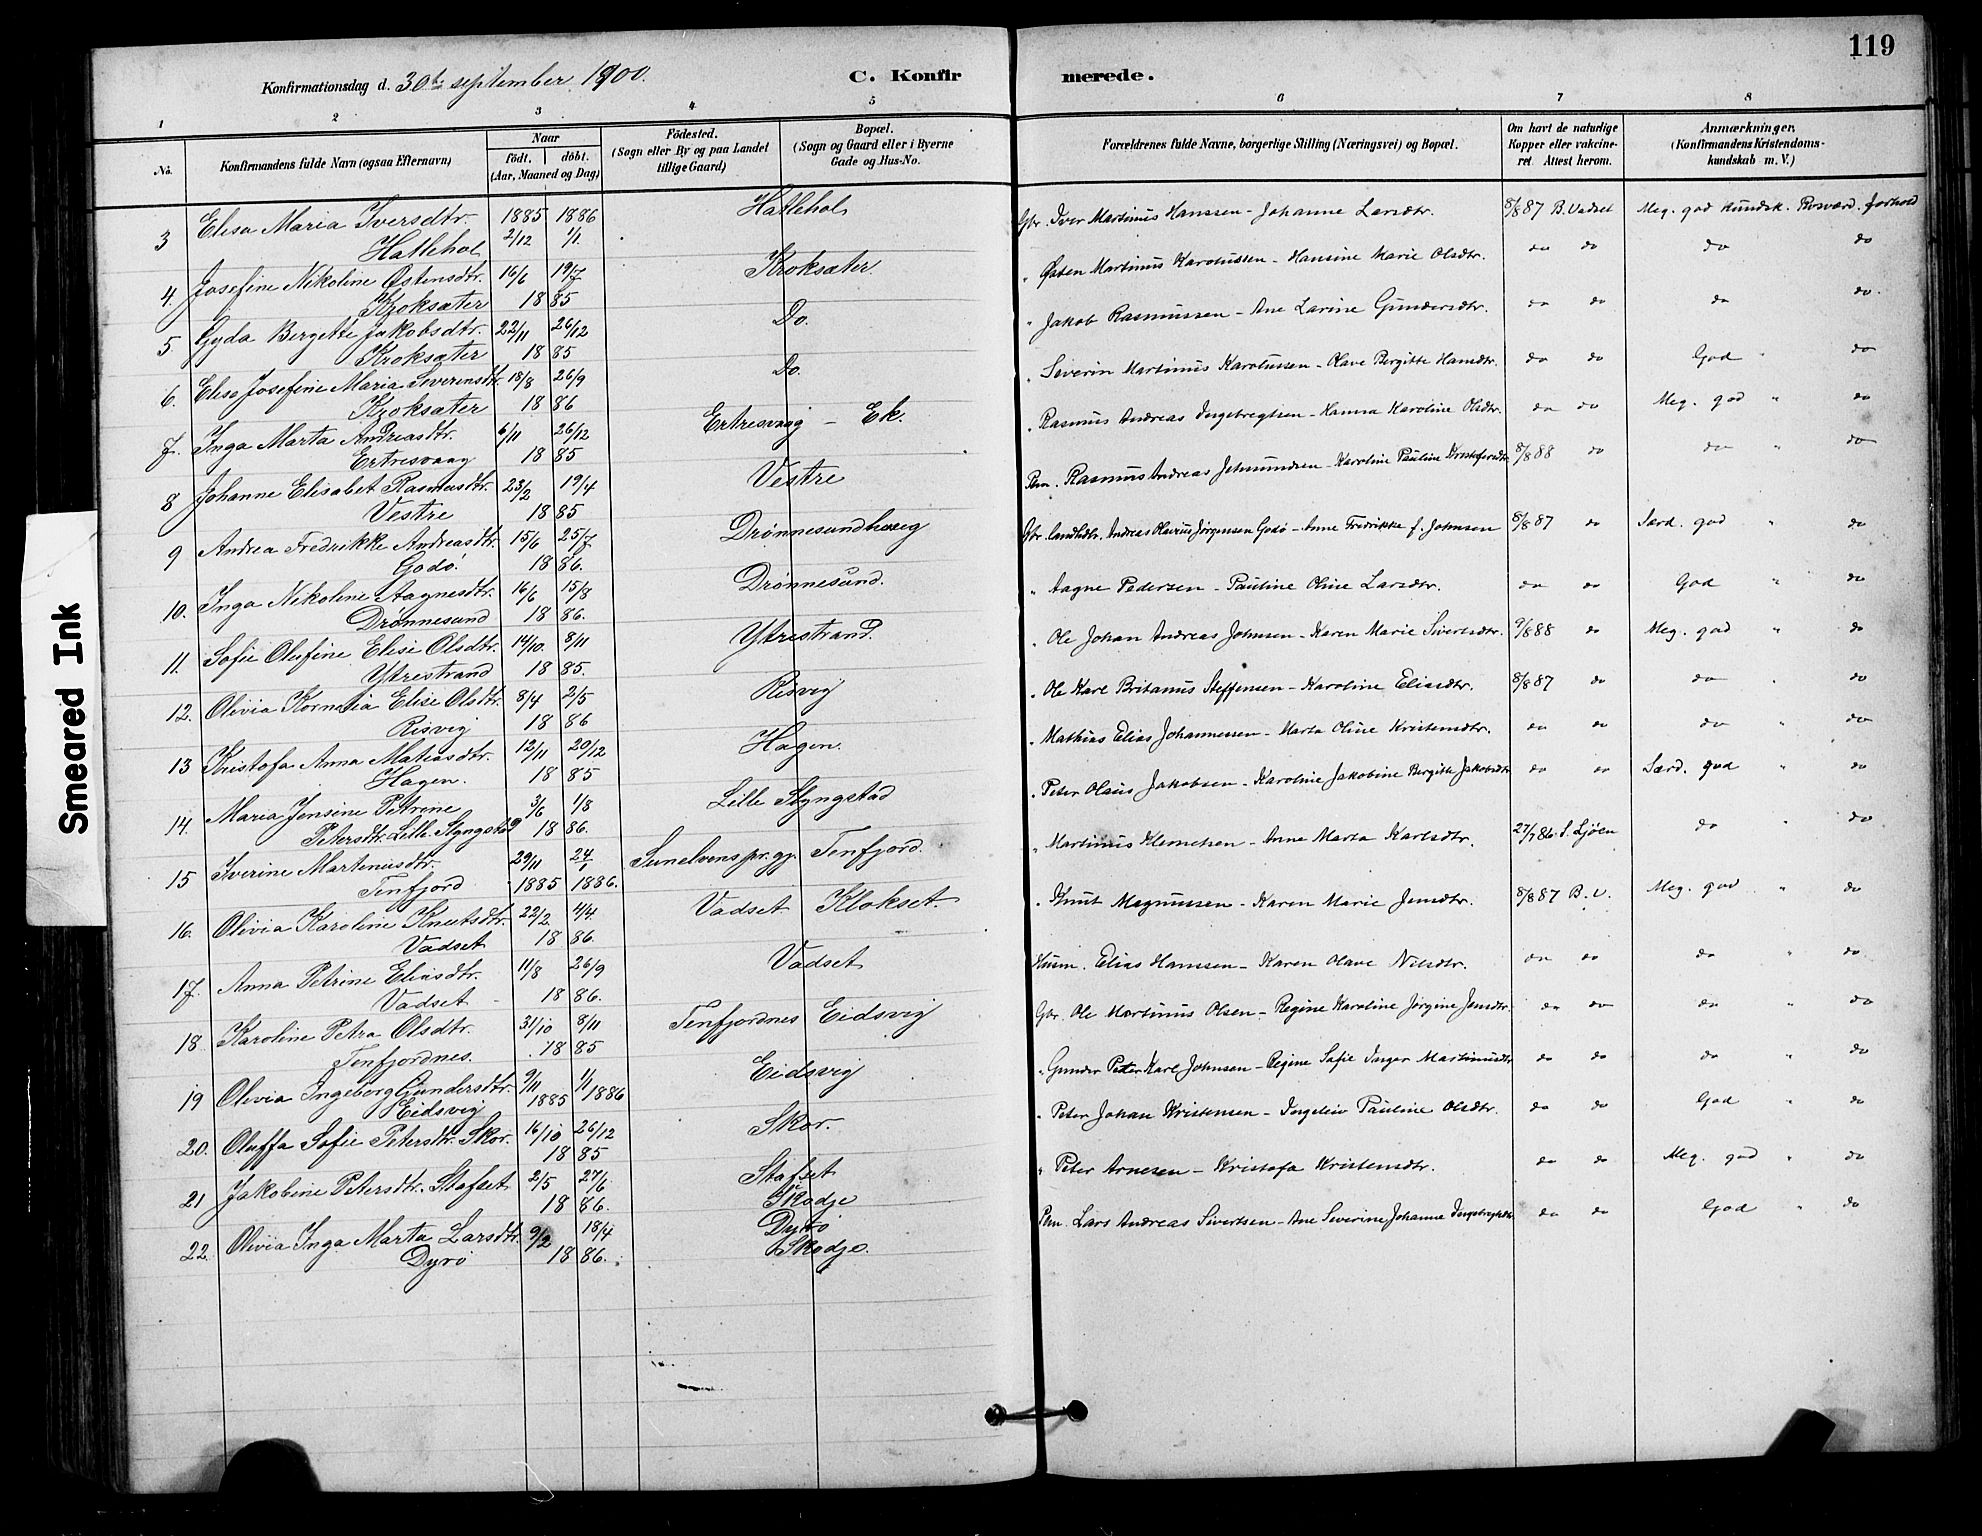 119
Konfirmationsdag d. 30te september 1900.
C. Konfirmerede.
1 2 3 4 5 6 7 8
No.
Konfirmandens fulde Navn (ogsaa Efternavn)
Naar
født. døbt.
(Aar, Maaned og Dag)
Födested.
(Sogn eller By og paa Landet
tillige Gaard)
Bopæl.
(Sogn og Gaard eller i Byerne
Gade og Hus-No.
Forældrenes fulde Navne, borgerlige Stilling (Næringsvei) og Bopæl.
Om havt de naturlige
Kopper eller vakcine-
ret. Attest herom.
Anmærkninger.
(Konfirmandens Kristendoms-
kundskab m. V.)
3 Elisa Maria Iversdtr. Hatlehol 1885 2/12 1886 1/1 Hatlehol Gbr. Iver Martinus Hanssen - Johanne Larsdtr. 8/8 87 B. Vadset Meg. god kundsk. Rosværd. forhold
4. Josefine Nikoline Østensdtr. Kroksæter 16/6 19/7 1885 Kroksæter " Østen Martinus Karolussen - Hansine Marie Olsdtr. do do do do
5 Gyda Bergitte Jakobsdtr. Kroksæter 22/11 26/12 1885 Do. " Jakob Rasmussen - Ane Larine Gundersdtr. do do do do.
6. Elise Josefine Maria Severinsdtr. Kroksæter 18/8 26/9 1886 Do. " Severin Martinus Karolussen - Olave Bergitte Hansdtr. do do God " do
7. Inga Marta Andreasdtr. Ertresvaag 6/11 26/12 1885 Ertresvaag - Ek. " Rasmus Andreas Ingebregtsen - Hanna Karoline Olsdtr. do do Meg. god " do
8 Johanne Elisabet Rasmusdtr. Vestre 23/2 19/4 1885 Vestre Pm. Rasmus Andreas Jetmundsen - Karoline Pauline Kristofersdtr. 8/8 88 do do " do
9 Andrea Fredrikke Andreasdtr. Godø. 15/6 25/7 1886. Drønnesundhaug Gbr. landhdlr. Andreas Olaus Jørgensen Godø - Anne Fredrikke f. Johnsen 8/8 87 do Særd. god " do
10. Inga Nikoline Aagnesdtr. Drønnesund 16/6 15/8 1886. Drønnesund. " Aagne Pedersen - Pauline Oline Larsdtr. do do God " do
11. Sofie Olufine Elise Olsdtr. Ytrestrand 14/10. 8/11 1885. Ytrestrand. " Ole Johan Andreas Johnsen - Karen Marie Sivertsdtr. 9/8 88 do Meg. god " do
12. Olivia Kornelia Elise Olsdtr. Risvig 8/4 2/5 1886 Risvig " Ole Karl Britanus Steffensen - Karoline Eliasdtr. 8/8 87 do do " do
13 Kristofa Anna Matiasdtr. Hagen. 12/11 20/12 1885 Hagen. " Mathias Elias Johannessen - Marta Oline Kristensdtr. do do do " do
14. Maria Jensine Petrine Petersdtr. Lille Slyngstad 3/6 1/8 1886. Lille Slyngstad " Peter Olaus Jakobsen - Karoline Jakobine Bergitte Jakobsdtr. do do Særd. god " do
15 Iverine Martinusdtr. Tenfjord 29/11 1885 24/1 1886. Sunelvens pr.gj. Tenfjord. " Martinus Klemetsen - Anne Marta Karlsdtr. 27/7 86. S. Ljøen do " do
16. Olivia Karoline Knutsdtr. Vadset 22/2 4/4. 1886. Vadset Klokset. " Knut Magnussen - Karen Marie Jensdtr. 8/8 87 B. V. Meg. god " do
17. Anna Petrine Eliasdtr. Vadset 11/8 26/9 1886. Vadset Husm. Elias Hanssen - Karen Olave Nilsdtr. do do do " do
18 Karoline Petra Olsdtr. Tenfjordnes. 31/10 8/11 1885 Tenfjordnes Eidsvig Gbr. Ole Martinus Olsen - Regine Karoline Jørgine Jensdtr. do do do " do
19 Olivia Ingeborg Gundersdtr. Eidsvig 9/11 1885 1/1 1886 Eidsvig " Gunder Peter Karl Johnsen - Regine Sofie Inger Martinusdtr do do do " do
20. Oluffa Sofie Petersdtr. Skor. 16/10 26/12 1885 Skor. " Peter Johan Kristensen - Ingeleiv Pauline Olsdtr. do do God " do
21 Jakobine Petersdtr. Stafset 2/5 27/6 1886. Stafset i Skodje " Peter Arnesen - Kristofa Kristensdtr. do do Meg. god " do
22. Olivia Inga Marta Larsdtr. Dyrø 9/2 18/4 1886. Dyrø i Skodje. Pm. Lars Andreas Sivertsen - Ane Severine Johanne Ingebregtsdtr do do God " do
Smeared Ink